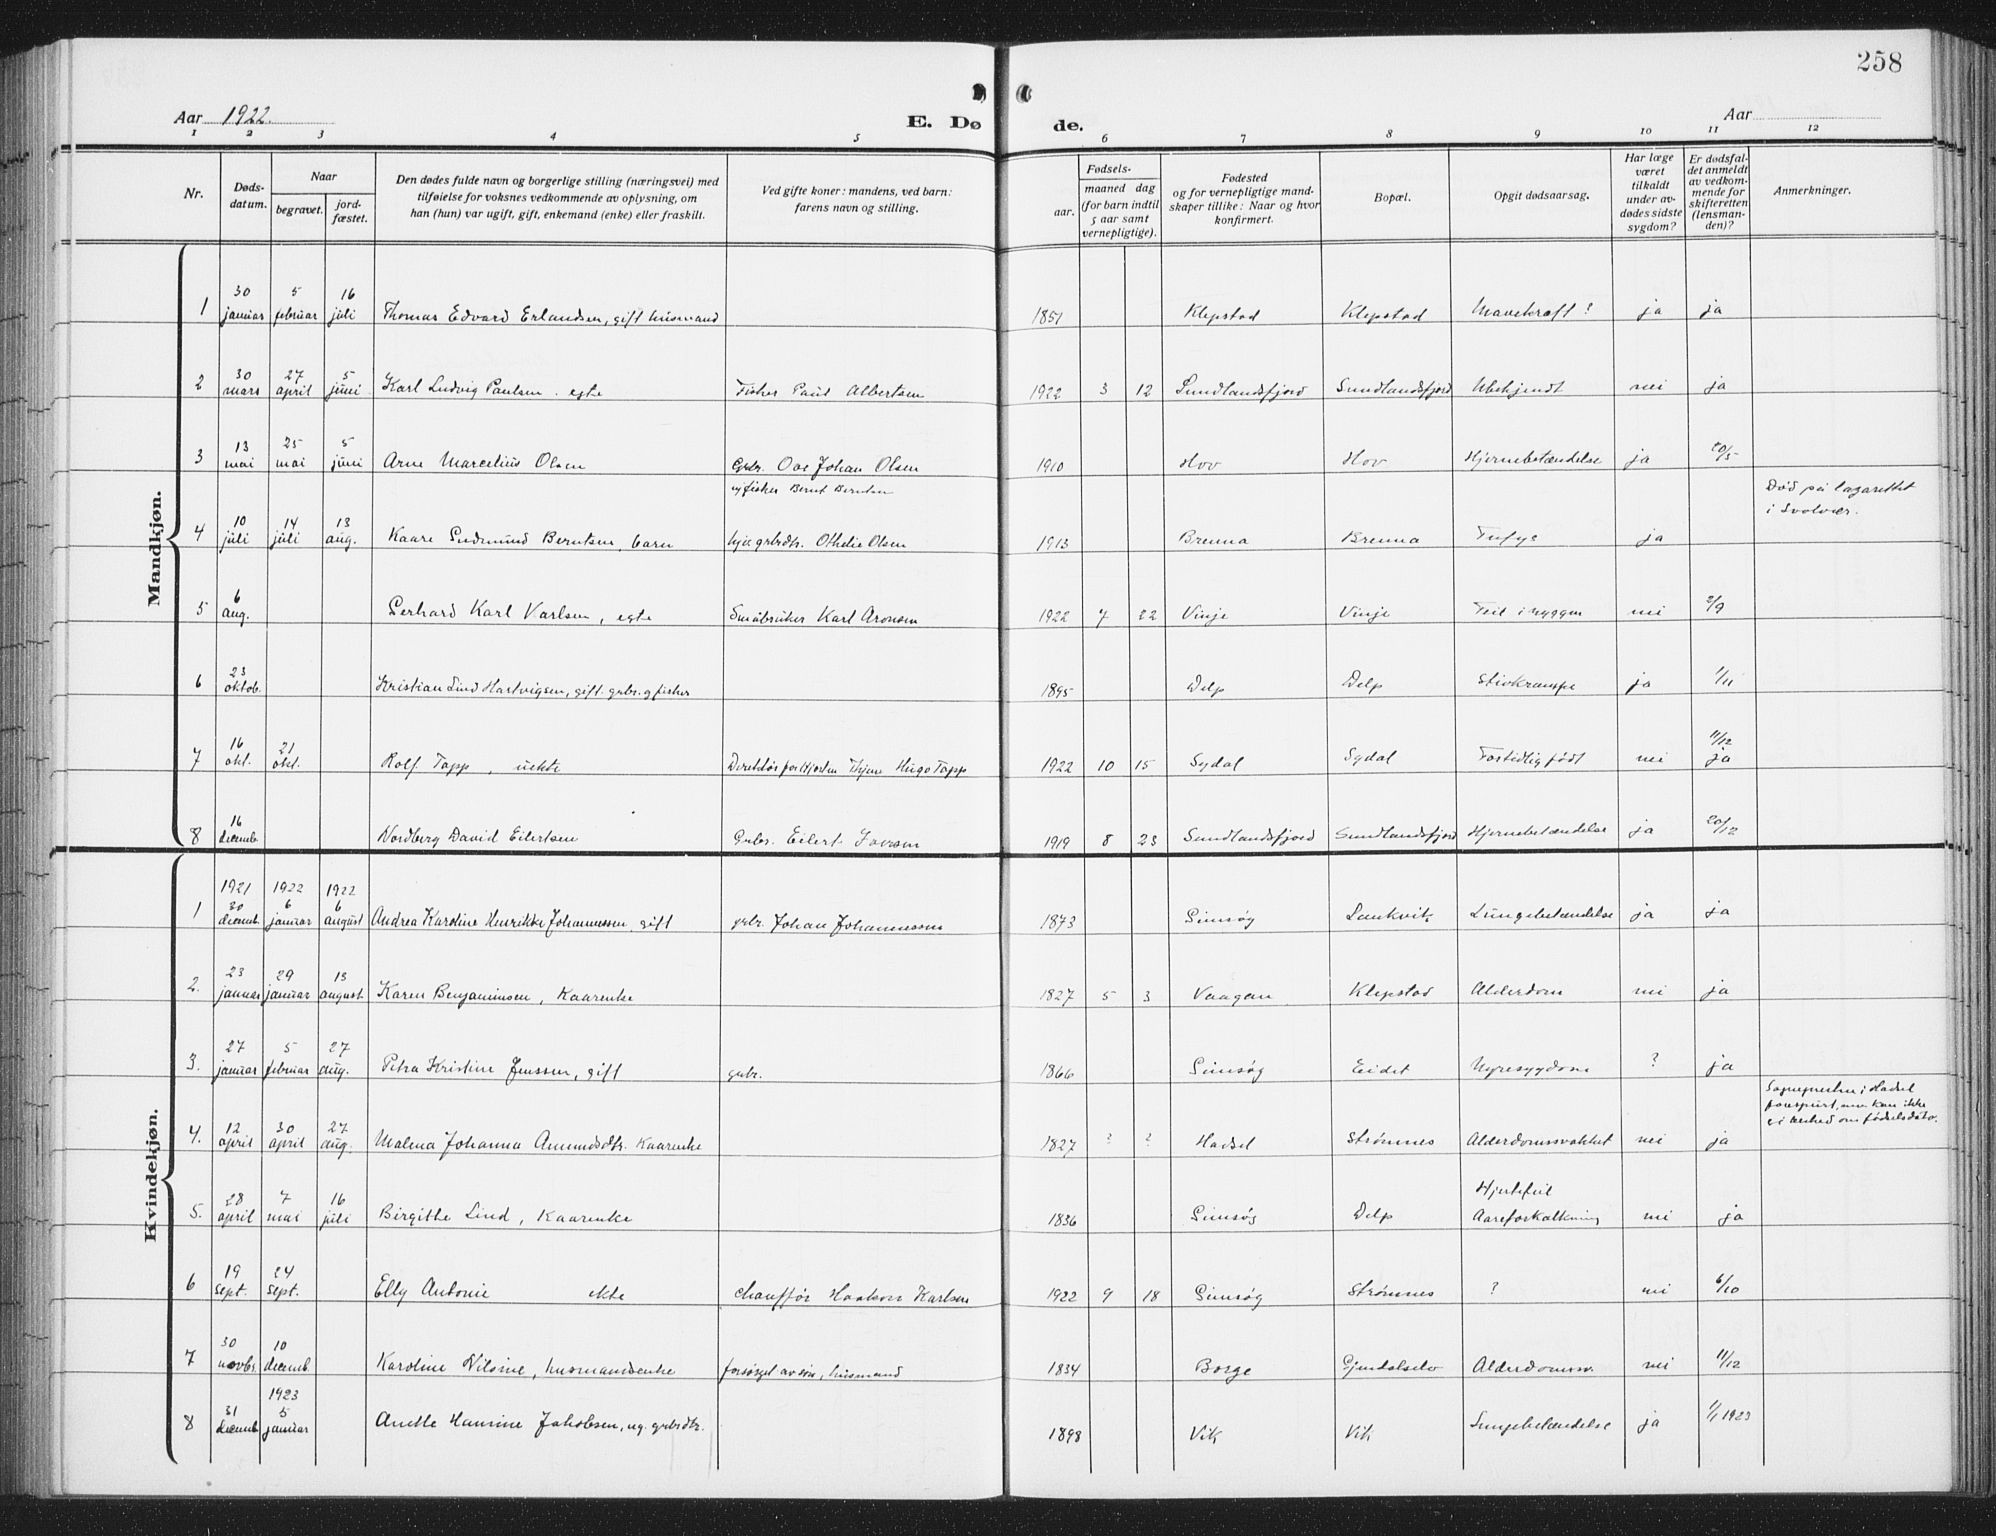 258
Aar 1922.
E. Dø
de.
Aar
1 2 3 4 5 6 7 8 9 10 11 12
Nr.
Døds-
datum.
Naar
begravet.
jord-
fæstet.
Den dødes fulde navn og borgerlige stilling (næringsvei) med
tilføielse for voksnes vedkommende av oplysning, om
han (hun) var ugift, gift, enkemand (enke) eller fraskilt.
Ved gifte koner: mandens, ved barn:
farens navn og stilling.
Fødsels-
aar.
maaned dag
(for barn indtil
5 aar samt
vernepligtige).
Fødested
og for vernepligtige mand-
skaper tillike: Naar og hvor
konfirmert.
Bopæl.
Opgit dødsaarsag.
Har læge
været
tilkaldt
under av-
dødes sidste
sygdom?
Er dødsfal-
det anmeldt
av vedkom-
mende for
skifteretten
(lensman-
den)?
Anmerkninger.
Mandkjøn.
1 30 januar 5 februar 16 juli Thomas Edvard Erlandsen, gift husmand 1851 Klepstad Klepstad Mavekræft? ja ja
2 30 mars 27 april 5 juni Karl Ludvig Paulsen. egte Fisker Paul Albertsen 1922 3 12 Sundlandsfjord Sundlandsfjord Ubekjendt nei ja
3 13 mai 25 mai 5 juni Arne Marcelius Olsen Grbr. Ove Johan Olsen 1910 Hov Hov Hjernebetændelse ja 20/5
4 10 juli 14 juli 13 aug. Kaare Gudmund Berntsen, barn fisker Bernt Berntsen
grbrdtr. Othelie Olsen 1913 Brenna Brenna ja Død på lazarettet
i Svolvær.
5 6 aug. Gerhard Karl Karlsen, egte Småbruker Karl Aronsen 1922 7 22 Vinje Vinje Feil i ryggen nei 2/9
6 23 oktob. Kristian Lind Hartvigsen, gift. grbr. og fisker 1895 Delp Delp Stivkrampe ja 1/11
7 16 okt. 21 okt. Rolf Tapp, uekte Hugo Tapp 1922 10 15 Sydal Sydal Fortidlig født nei 11/12 ja
8 16 decemb. Nordberg David Eilertsen Grbr. Eilert 1919 8 23 Sundlandsfjord Sundlandsfjord Hjernebetændelse ja 20/12
Kvindekjøn.
1 1921 30 decemb. 1922 6 januar 1922 6 august Andrea Karoline Henrikke Johannessen, gift grbr. Johan Johannessen 1873 Gimsøy Saukvik Lungebetændelse ja ja
2. 23 januar 29 januar 13 august Karen Benjaminsen, Kaarenke 1827 5 3 Vaagan Klepstad Alderdom nei ja
3. 27 januar 5 februar 27 aug. Petra Kristine Jenssen, gift grbr. 1866 Gimsøy Eidet Nyresygdom ? ja
4. 12 april 30 april 27 aug. Malena Johanna Amundsdtr. Kaarenke 1827 ? ? Hadsel Strømnes Alderdomssvakhet nei ja Sognepresten i Hadsel
forespurt, men kan ikke
gi besked om fødselsdato.
5. 28 april 7 mai 16 juli Birgithe Lind, Kaarenke 1836 Gimsøy Delp Hjertefeil
Aareforkalkning nei ja
6 19 sept. 24 sept. Elly Antonie ekte chauffør Haakon Karlsen 1922 9 18 Gimsøy Strømnes ? nei 6/10
7 30 novbr. 10 decemb. Karoline Nilsine, husmandsenke forsørget av søn, husmand 1834 Borge Alderdomssv. nei 11/12
8 31 decemb. 1923 5 januar Anette Hansine Jakobsen, ug. grbrdtr. 1898 Vik Vik Lungebetændelse ja 1/1 1923